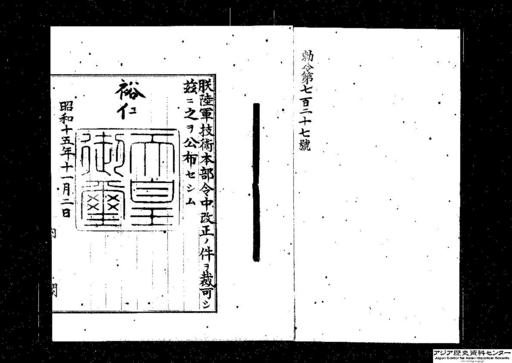 勅令第七百二十七號
朕陸軍技術本部令中改正ノ件ヲ裁可シ
茲ニ之ヲ公布セシム
裕仁
天皇御璽
昭和十五年十一月二日
内閣
アジア歴史資料センター
Japan Center for Asian Historical Records